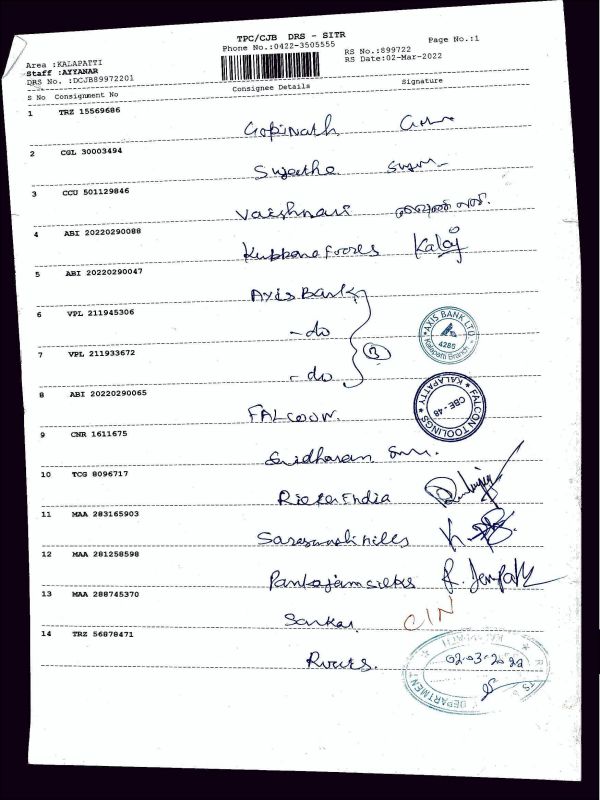 TPC/CJB DRS - SITR
Phone No.:0422-3505555
Page No.:1
Area :KALAPATTI
RS No.:899722
Staff :AYYANAR
RS Date:02-Mar-2022
DRS No. :DCJB89972201
S No Consignment No Consignee Details Signature
1 TRZ 15569686
Gopinath
2 CGL 30003494
Swetha
3 CCU 501129846
Vaishnavi
4 ABI 20220290088
Kuppana Foods Kalaj
5 ABI 20220290047
Axis Bank
6 VPL 211945306
- do
AXIS BANK LTD
4285
Kalapatti Branch
7 VPL 211933672
- do
3
8 ABI 20220290065
FALCOON.
FALCON TOOLINGS
CBE - 48
KALAPATTY
9 CNR 1611675
Sridharan
10 TCG 8096717
Rieter India
11 MAA 283165903
Saraswathi hills
12 MAA 281258598
Pankajam silks
13 MAA 288745370
Sankar CIN
14 TRZ 56878471
Roots.
02-03-2022
DEPARTMENT